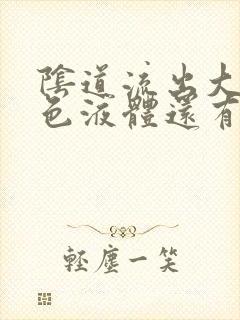 陰道流出大
色液體還有
輕塵一笑